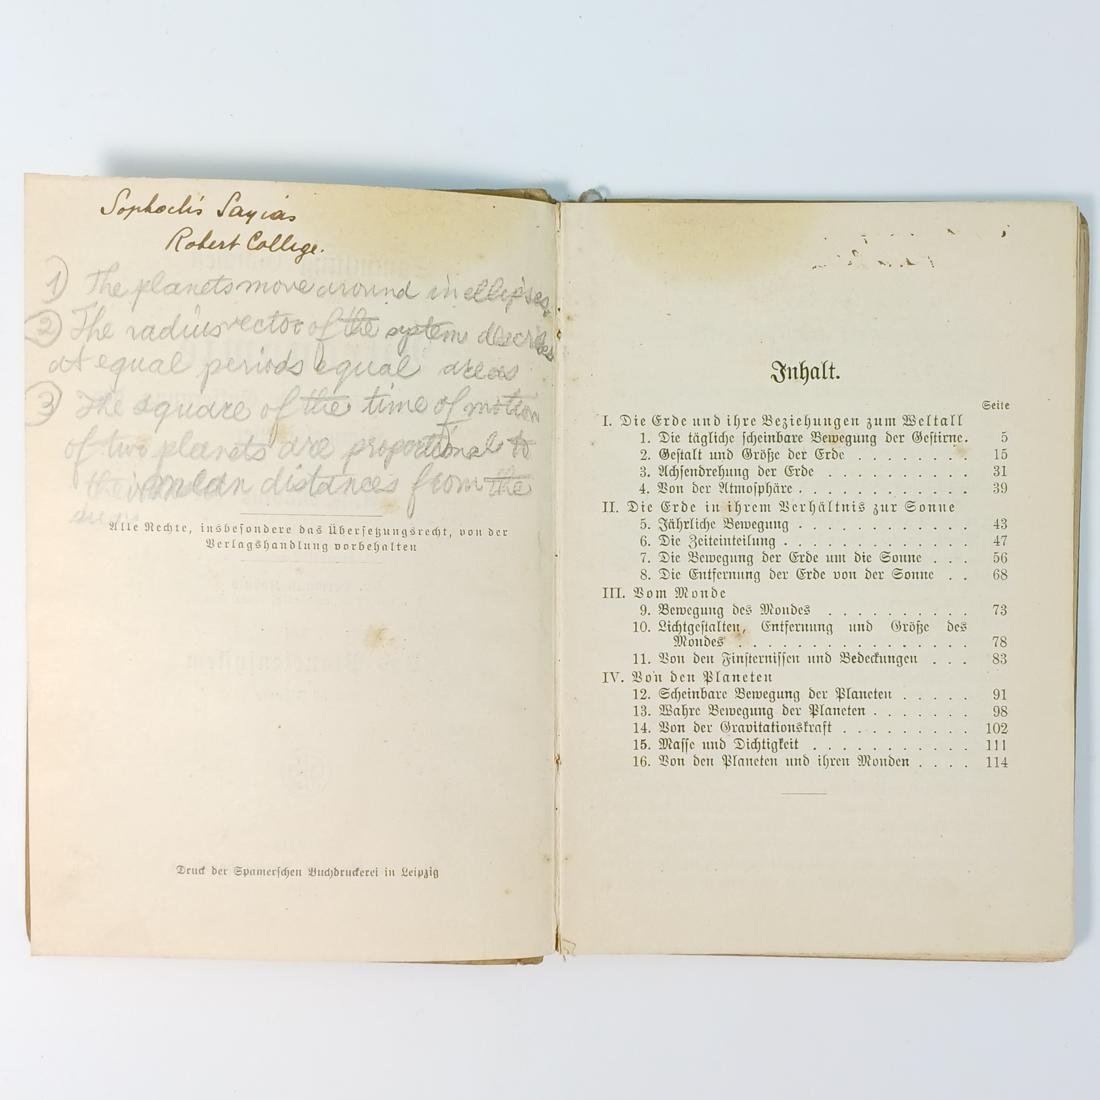 Sophoclis Sayias
Robert College.
1) The planets move around in ellipses
2) The radius vector of the system describes
at equal periods equal areas
3) The square of the time of motion
of two planets are proportional to
their mean distances from the
sun
Alle Rechte, insbesondere das Übersetzungsrecht, von der
Verlagshandlung vorbehalten
Druck der Spamerschen Buchdruckerei in Leipzig
Inhalt.
Seite
I. Die Erde und ihre Beziehungen zum Weltall
1. Die tägliche scheinbare Bewegung der Gestirne. 5
2. Gestalt und Größe der Erde . . . . . . . 15
3. Achsendrehung der Erde . . . . . . . . . 31
4. Von der Atmosphäre . . . . . . . . . . . 39
II. Die Erde in ihrem Verhältnis zur Sonne
5. Jährliche Bewegung . . . . . . . . . . . 43
6. Die Zeiteinteilung . . . . . . . . . . . . 47
7. Die Bewegung der Erde um die Sonne . . . 56
8. Die Entfernung der Erde von der Sonne . . 68
III. Vom Monde
9. Bewegung des Mondes . . . . . . . . . . 73
10. Lichtgestalten, Entfernung und Größe des
Mondes . . . . . . . . . . . . . . . . 78
11. Von den Finsternissen und Bedeckungen . . . 83
IV. Von den Planeten
12. Scheinbare Bewegung der Planeten . . . . . 91
13. Wahre Bewegung der Planeten . . . . . . . 98
14. Von der Gravitationskraft . . . . . . . . . 102
15. Masse und Dichtigkeit . . . . . . . . . . . 111
16. Von den Planeten und ihren Monden . . . . 114